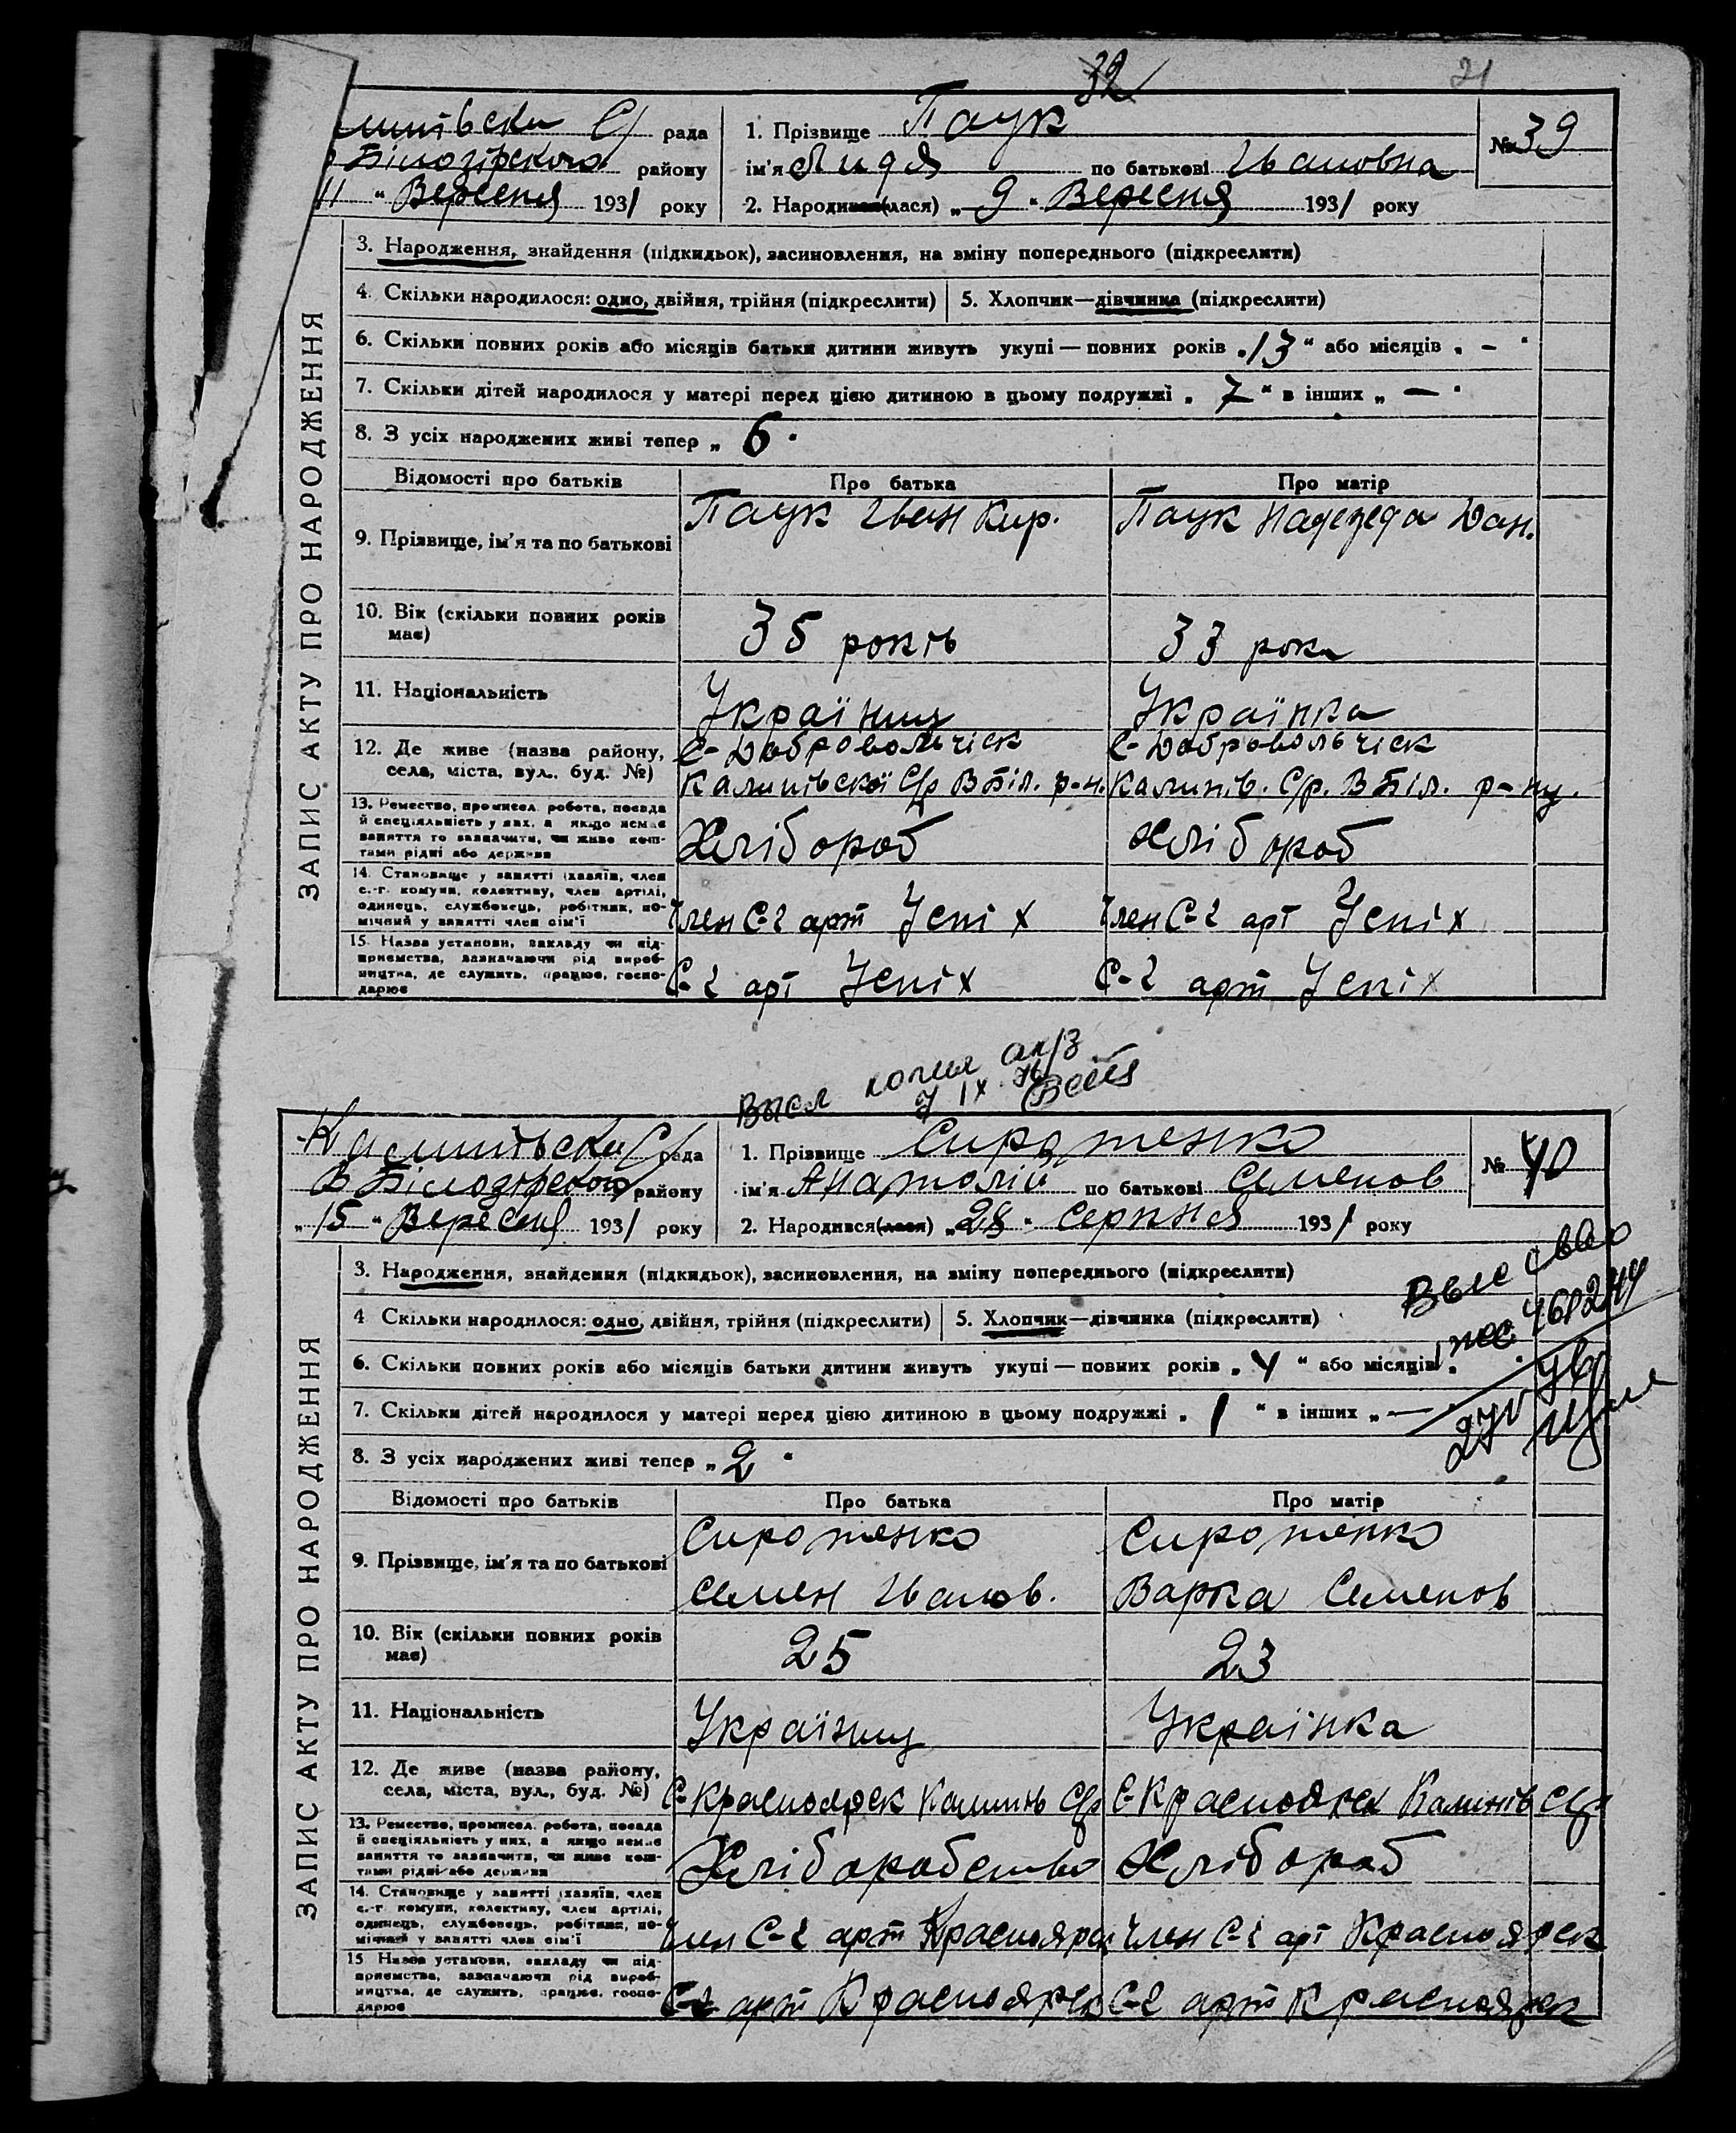 32
21
линівська С/ рада
В Білозірського району
11 " Вересня 1931 року
1. Прізвище Паук
ім'я Лидя по батькові Ивановна
2. Народився(лася) „ 9 " Вересня 1931 року
№ 39
ЗАПИС АКТУ ПРО НАРОДЖЕННЯ
3. Народження, знайдення (підкидьок), засиновлення, на зміну попереднього (підкреслити)
4. Скільки народилося: одно, двійня, трійня (підкреслити) 5. Хлопчик—дівчинка (підкреслити)
6. Скільки повних років або місяців батьки дитини живуть укупі — повних років „ 13 " або місяців „ - "
7. Скільки дітей народилося у матері перед цією дитиною в цьому подружжі „ 7 " в інших „ — "
8. З усіх народжених живі тепер „ 6 "
Відомості про батьків Про батька Про матір
9. Прізвище, ім'я та по батькові Паук Иван Кир. Паук Надезеда Дан.
10. Вік (скільки повних років має) 35 років 33 рока
11. Національність Україниц Українка
12. Де живе (назва району, села, міста, вул., буд. №)
С-Добровольчіск Калинівської С/р ВБіл. р-н.
С-Добровольчіск Калинів. С/р. ВБіл. р-ну.
13. Ремество, промисел, робота, посада й спеціяльність у них, а якщо немає заняття то зазначити, чи живе коштами рідні або держави
Хлібороб Хлібороб
14. Становище у занятті (хазяїн, член с.-г. комуни, колективу, член артілі, одинець, службовець, робітник, помічний у занятті член сім'ї
Член С-г арт Успіх Член С-г арт Успіх
15. Назва установи, закладу чи підприємства, зазначаючи рід виробництва, де служить, працює, господарює
С-г арт Успіх С-г арт Успіх
Высл копия ак/з
7 IX
Калинівська С/ рада
В Білозірського району
„ 15 " Вересня 1931 року
1. Прізвище Сиротенко
ім'я Анатолій по батькові Семенов
2. Народився(лася) „ 28 " Серпня 1931 року
№ 40
ЗАПИС АКТУ ПРО НАРОДЖЕННЯ
3. Народження, знайдення (підкидьок), засиновлення, на зміну попереднього (підкреслити)
4 Скільки народилося: одно, двійня, трійня (підкреслити) 5. Хлопчик—дівчинка (підкреслити)
6. Скільки повних років або місяців батьки дитини живуть укупі — повних років „ 4 " або місяців „
7. Скільки дітей народилося у матері перед цією дитиною в цьому подружжі „ 1 " в інших „ —
8. З усіх народжених живі тепер „ 2 "
Відомості про батьків Про батька Про матір
9. Прізвище, ім'я та по батькові
Сиротенко Семен Иванов.
Сиротенко Варка Семенов
10. Вік (скільки повних років має) 25 23
11. Національність Україниц Українка
12. Де живе (назва району, села, міста, вул., буд. №)
С-Красноярск Калинів С/р С-Красноярск Калинів С/р
13. Ремество, промисел, робота, посада й спеціяльність у них, а якщо немає заняття то зазначити, чи живе коштами рідні або держави
Хліборобство Хлібороб
14. Становище у занятті (хазяїн, член с.-г. комуни, колективу, член артілі, одинець, службовець, робітник, помічний у занятті член сім'ї
Член С-г арт Красноярск Член С-г арт Красноярск
15 Назва установи, закладу чи підприємства, зазначаючи рід виробництва, де служить, працює, господарює
С-г арт Красноярск С-г арт Красноярск